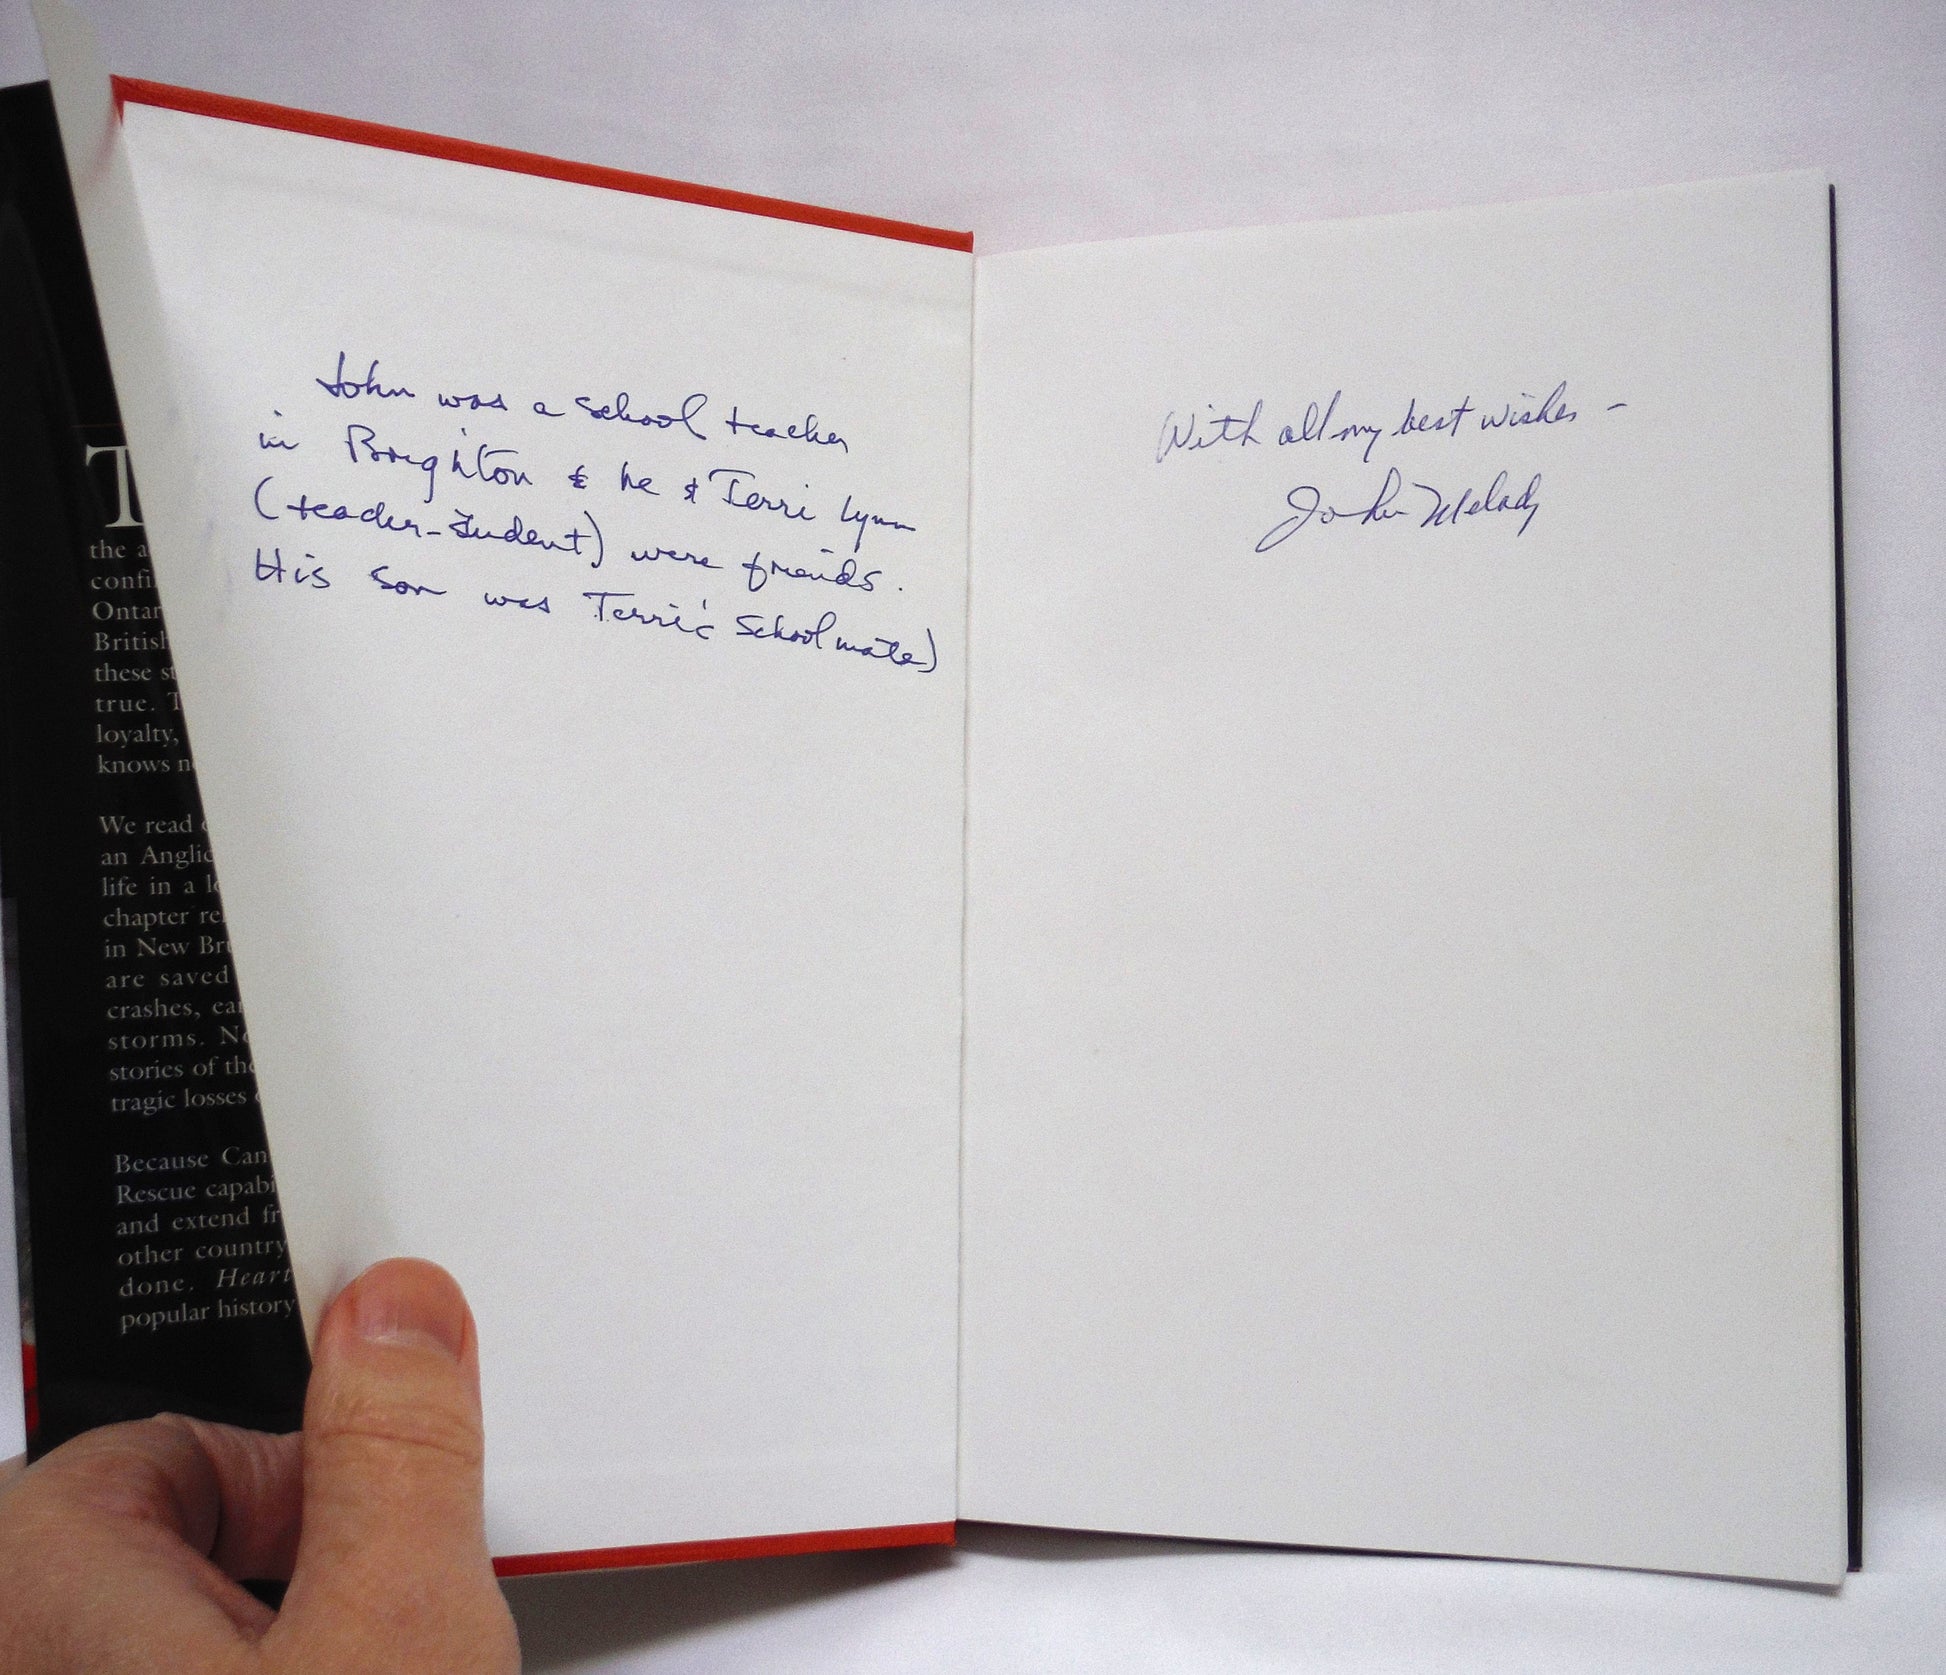 John was a school teacher
in Brighton & he & Terri Lynn
(teacher-student) were friends.
His son was Terri's Schoolmate)
With all my best wishes -
John Melady
T
the a
confi
Ontar
British
these st
true. T
loyalty,
knows n
We read
an Anglic
life in a l
chapter re
in New Bru
are saved
crashes, ear
storms. No
stories of the
tragic losses
Because Can
Rescue capabi
and extend fr
other country
done. Heart
popular history